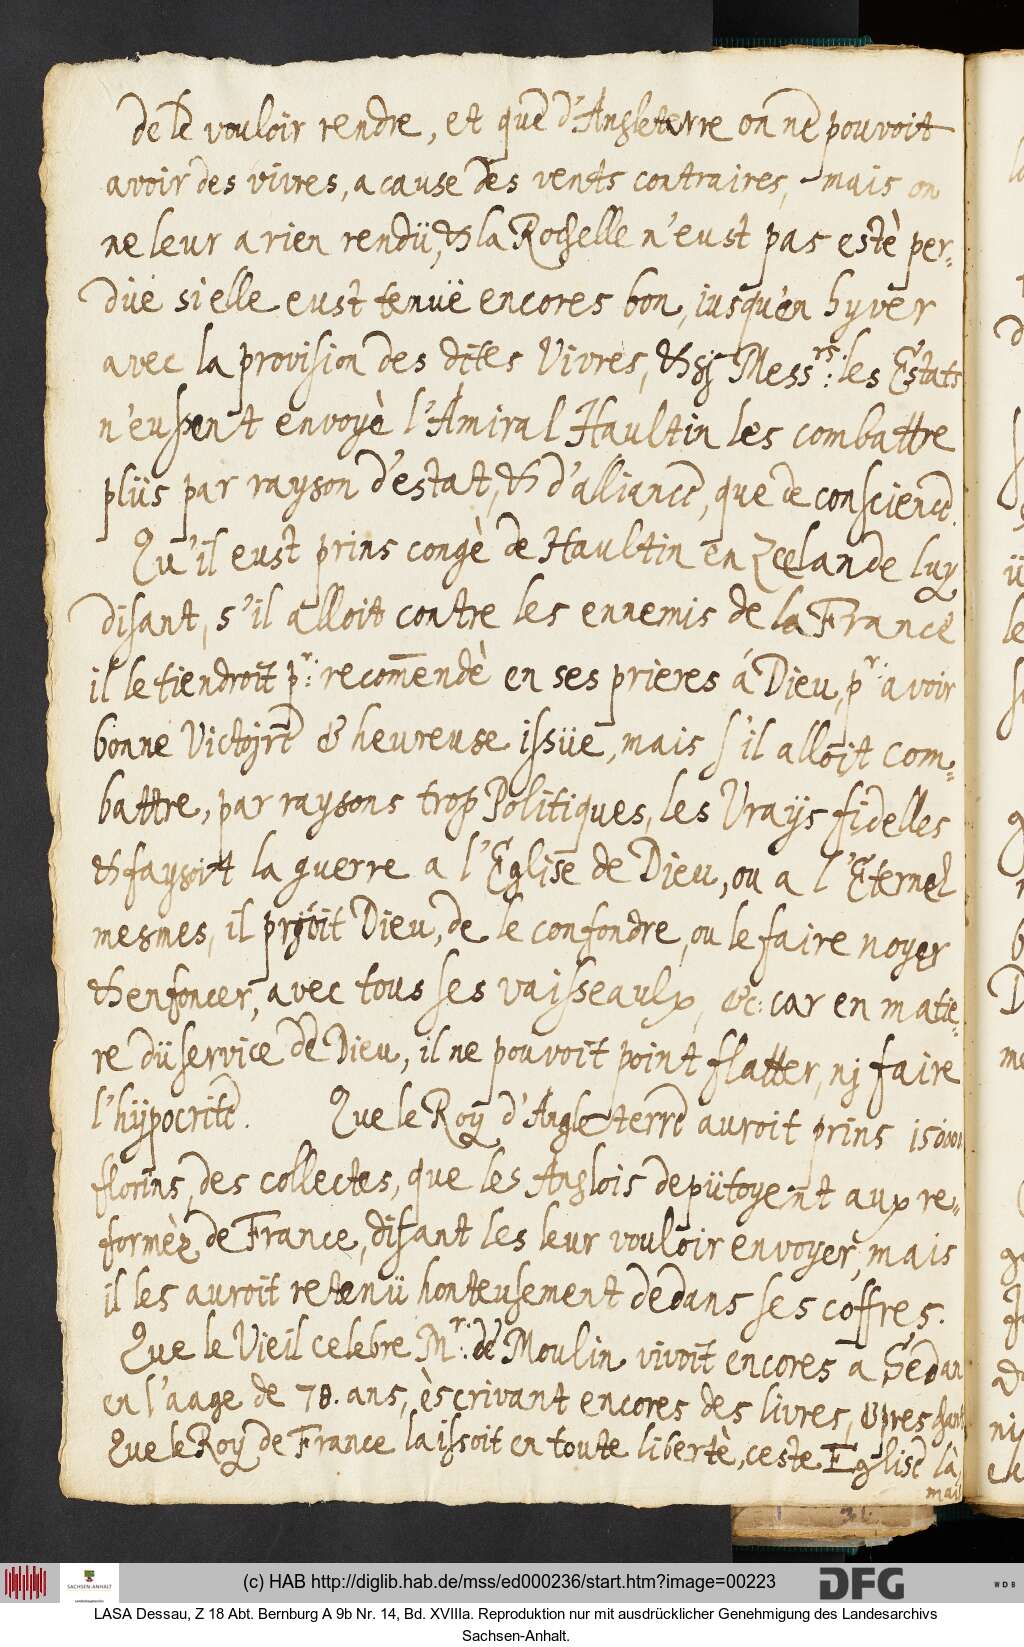 de le vouloir rendre, et que d'Angleterre on ne pouvoit
avoir des vivres, a cause des vents contraires, mais on
ne leur a rien rendü, & la Rochelle n'eust pas estè per-
düe si elle eust tenuë encores bon, iusqu'en hyver
avec la provision des dites Vivres, & sj Mess.rs les Estats
n'eussent envoyè l'Amiral Haultin les combattre
plüs par rayson d'estat, & d'alliance, que de conscience.
Qu'il eust prins congè de Haultin en Zeelande luy
disant, s'il alloit contre les ennemis de la France
il le tiendroit p.r recommendè en ses prieres á Dieu, p.r avoir
bonne Victojre & heureuse issüe, mais s'il allojt com-
battre, par raysons trop Politiques, les Vrays fidelles
& faysoit la guerre a l'Eglise de Dieu, ou a l'Eternel
mesmes, il prioit Dieu, de le confondre, ou le faire noyer
& enfoncer, avec tous ses vaisseaulx, &c: car en matie-
re dü service de Dieu, il ne pouvoit point flatter, nj faire
l'hÿpocrite. Que le Roy d'Angleterre auroit prins
florins, des collectes, que les Anglois depütoyent aux re-
formèz de France, disant les leur vouloir envoyer, mais
il les auroit retenü honteusement dedans ses coffres.
Que le Vieil celebre M.r de Moulin vivoit encores a Sedan
en l'aage de 78. ans, èscrivant encores des livres, & preschant
Que le Roy de France laissoit en toute libertè, ceste Eglise là,
mais
(c) HAB http://diglib.hab.de/mss/ed000236/start.htm?image=00223
SACHSEN-ANHALT
DFG
WDB
LASA Dessau, Z 18 Abt. Bernburg A 9b Nr. 14, Bd. XVIIIa. Reproduktion nur mit ausdrücklicher Genehmigung des Landesarchivs
Sachsen-Anhalt.